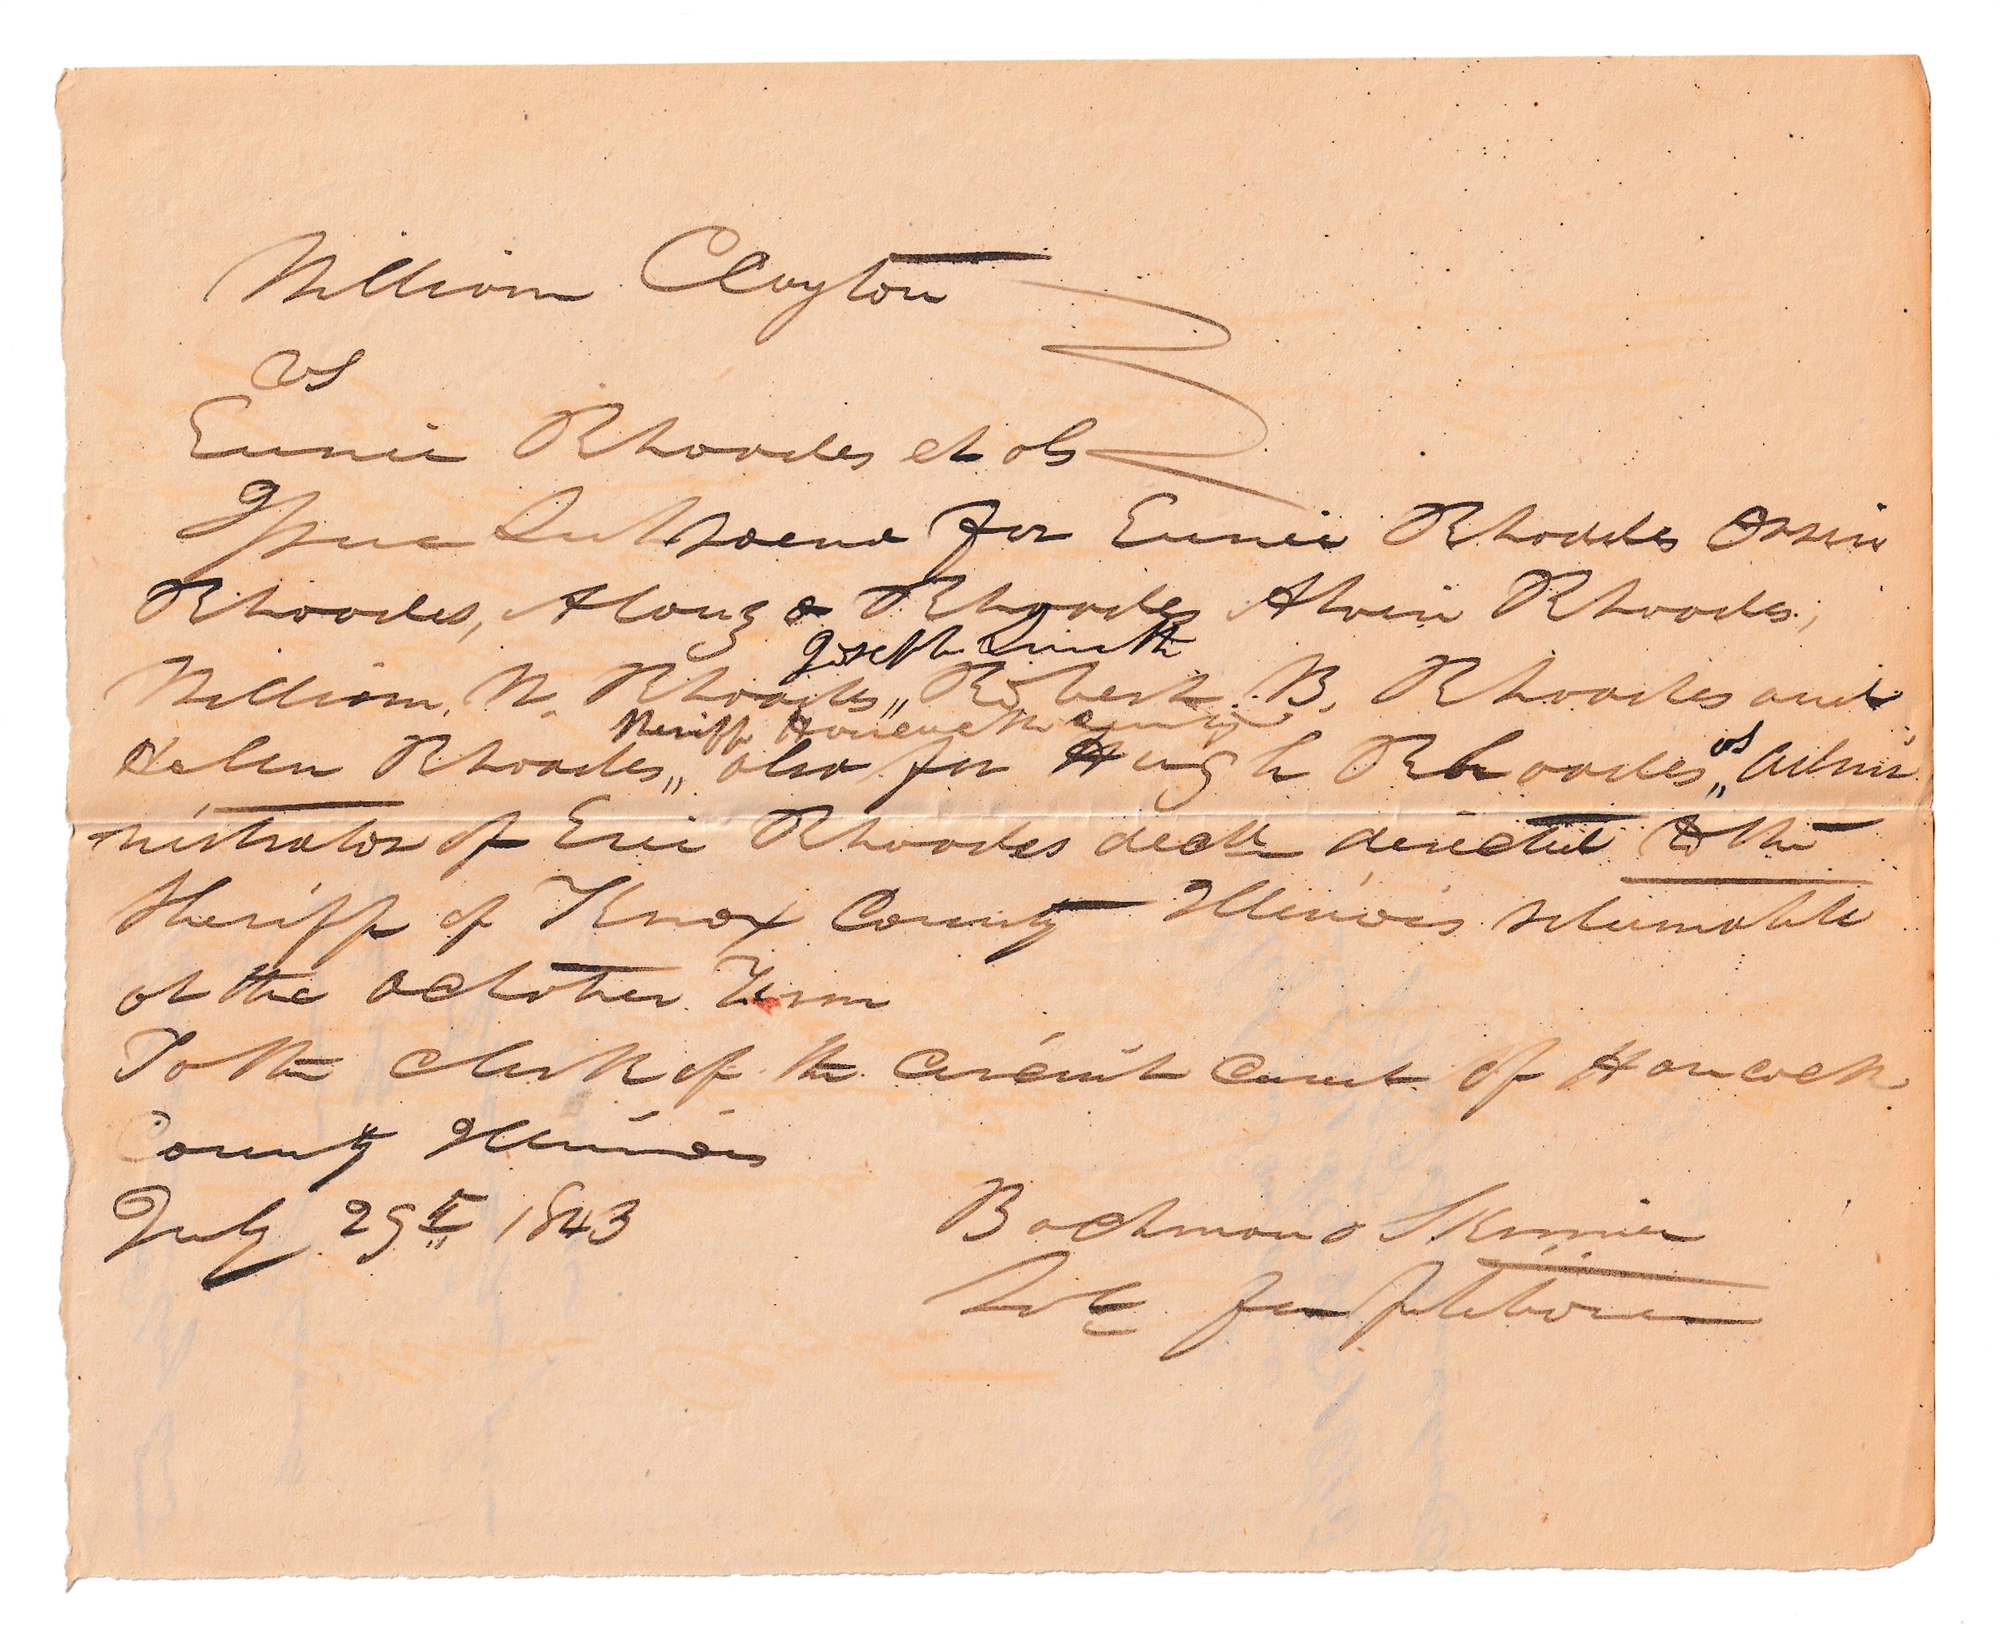 William Clayton
vs
Eunice Rhoades et als
Issue Subpoena for Eunice Rhoades Orrin
Rhoades, Alonzo Rhoades Alvin Rhoades,
Joseph Smith
William, W. Rhoades,, Robert. B. Rhoades and
Sheriff Hancock County
Helen Rhoades,, also for Hugh Rhoades,, as Admi
nistrator of Eric Rhoades decd directed to the
Sheriff of Knox County Illinois returnable
at the October Term
To the Clerk of the circuit court of Hancock
County Illinois
July 29th 1843
Bachman & Skinner
Sols for petitioner